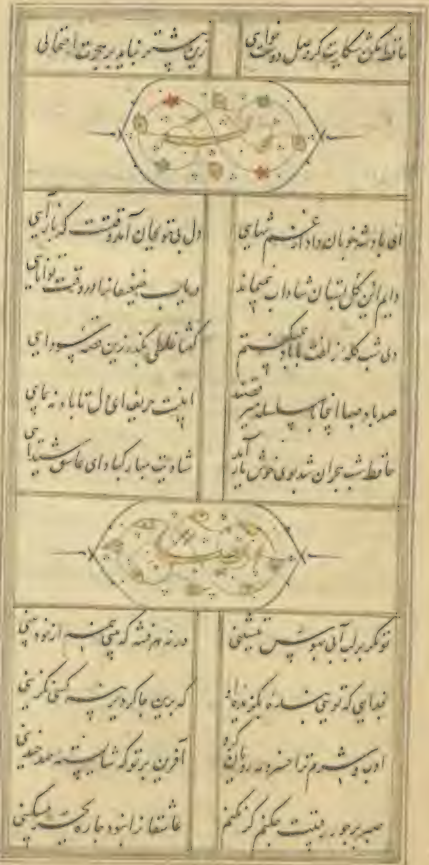 حافظ مکن شکایت گر وصل دوست خواهی
زین بیشتر نباید بر هجرت احتمالی
ای پادشه خوبان داد از غم تنهایی
دل بی تو بجان آمد وقتست که بازآیی
دایم گل این بستان شاداب نمیماند
دریاب ضعیفانرا در وقت توانایی
دی شب گله زلفت با باد همیگفتم
گفتا غلطی بگذر زین فکرت سودایی
صد باد صبا اینجا با سلسله میرقصند
اینست حریف ای دل تا باد نپیمایی
حافظ شب هجران شد بوی خوش یار آمد
شادیت مبارک باد ای عاشق شیدایی
تو مگر بر لب آبی بهوس بنشینی
ورنه هر فتنه که بینی همه از خود بینی
بخدایی که تویی بنده بگزیده او
که برین چاکر دیرینه کسی نگزینی
ادب و شرم ترا خسرو مه رویان کرد
آفرین بر تو که شایسته صد چندینی
صبر بر جور رقیبت چکنم گر نکنم
عاشقانرا نبود چاره بجز مسکینی